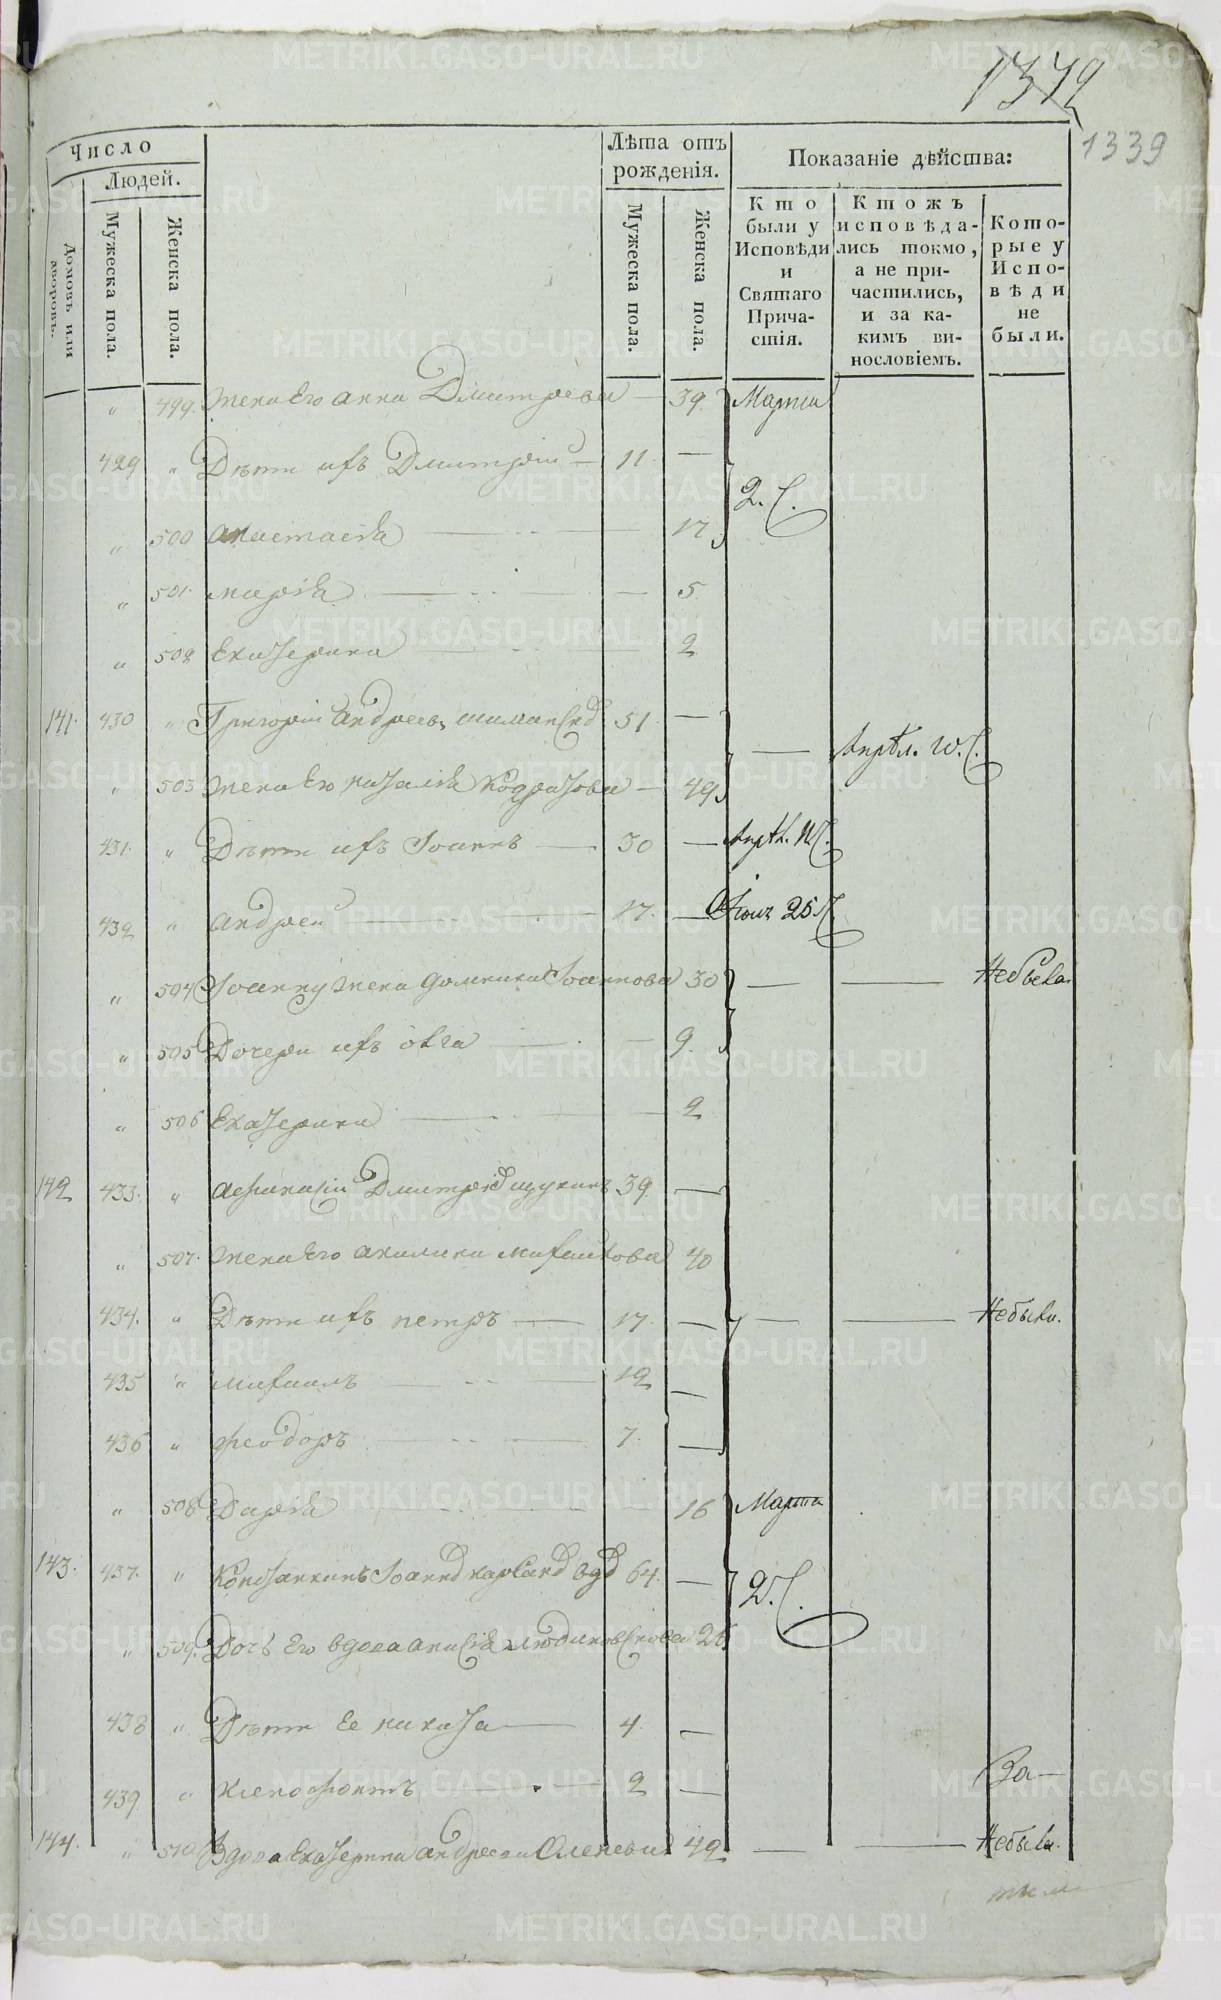 1339
Число
Людей.
Домовъ или дворовъ.
Мужеска пола.
Женска пола.
Лѣта отъ рожденія.
Мужеска пола.
Женска пола.
Показаніе дѣйства:
Кто были у Исповѣди и Святаго Причастія.
Ктожъ исповѣдались токмо, а не причастились, и за какимъ винословіемъ.
Которые у Исповѣди не были.
„ 499. жена его анна Дмитрева — 39. Марта
429 „ Дѣти ихъ Дмитрій — 11. —
2.
„ 500 анастасія — 17
„ 501. марія — 5.
„ 502 Екатерина — 2
141. 430 „ Григорій андреевъ 51. —
— Апрѣл.
„ 503 жена его наталія Кодратова — 49
431. „ Дѣти ихъ Іоаннъ — 30 — Апрѣл.
432 „ андрей — 17. — 25
„ 504 Іоанну жена домника Іоаннова 30 — — Не была
„ 505 Дочери ихъ олга — 9.
„ 506 Екатерина — 2
142 433. „ афанасій Дмитрев щукинъ 39. —
„ 507. жена его акилина михайлова 40
434. „ Дѣти ихъ петръ — 17. — — — Небыли.
435 „ михаилъ — 12 —
436 „ феодоръ — 7. —
„ 508 Дарія — 16 Марта
143. 437. „ Іоанно вдо 64. —
2.
„ 509. Дочь его вдова анисія 26
438 „ Дѣти ее никита — 4. —
439 „ ксенофонтъ — 2 — За—
144. „ 510 Вдова Екатерина андреева 42 — — Небыла.
METRIKI.GASO-URAL.RU